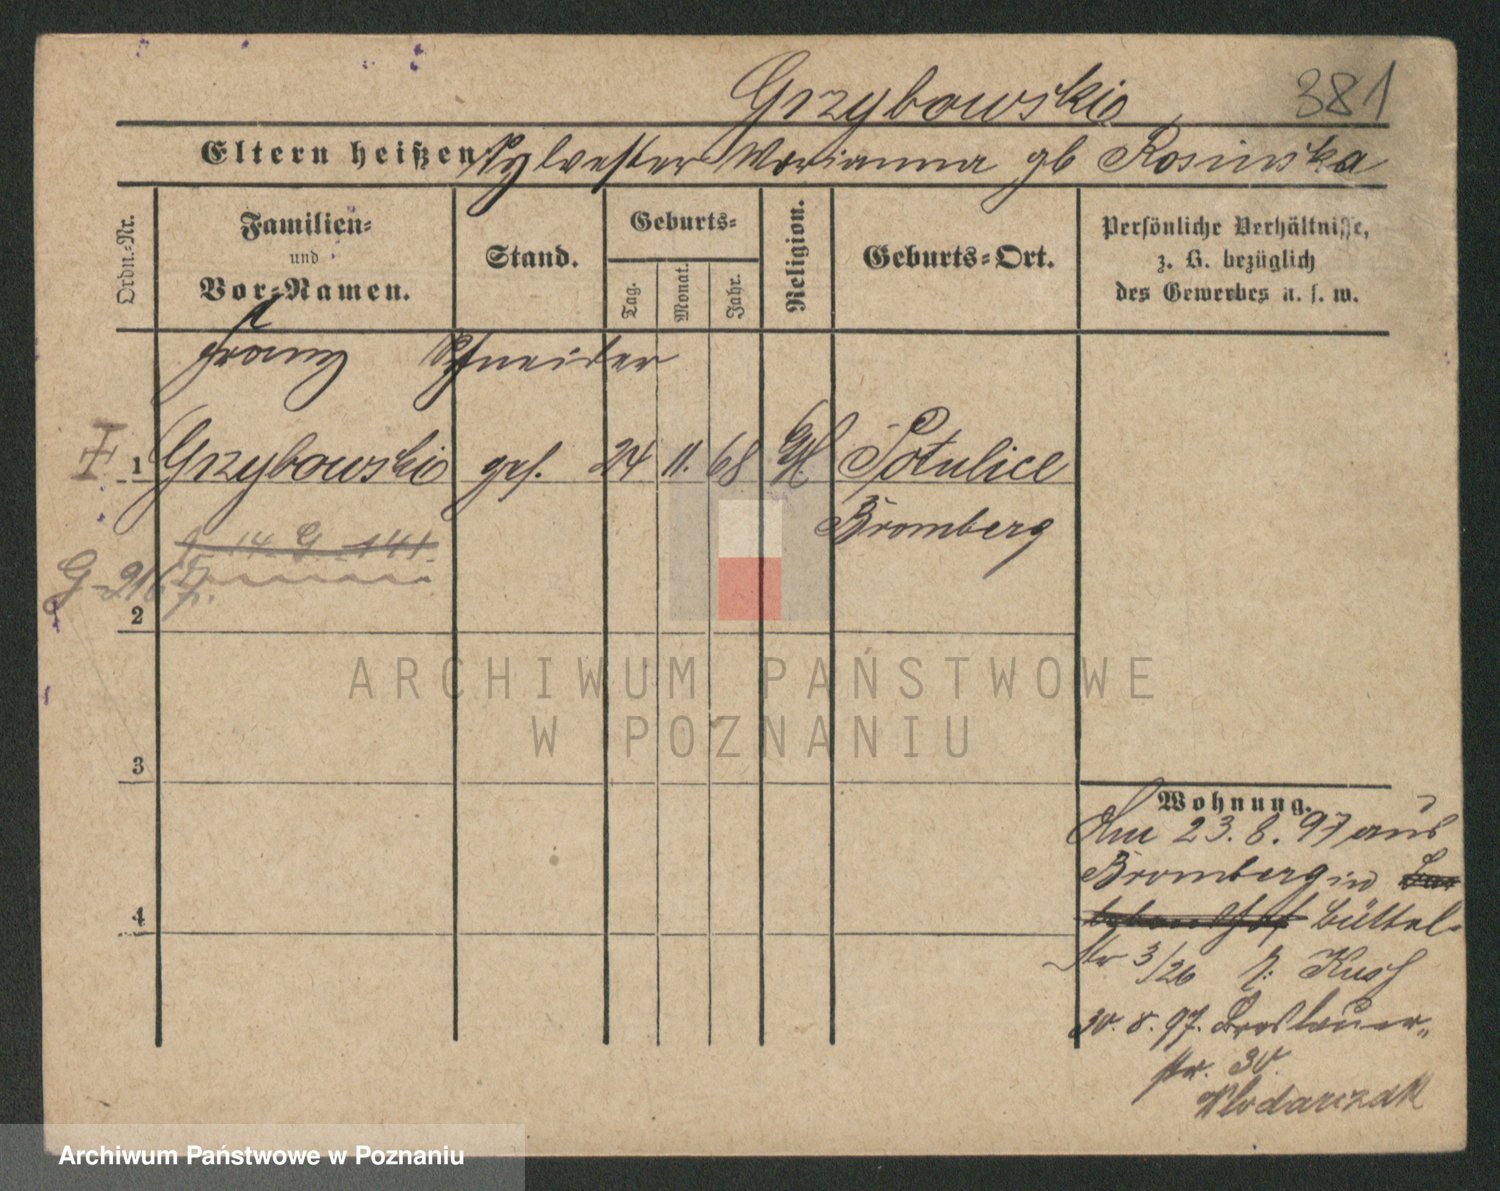 Grzybowski 381
Eltern heißen: Sylvester Marianna gb Rosinska
Ordn.-Nr.
Familien-
und
Vor-Namen.
Stand.
Geburts-
Tag.
Monat.
Jahr.
Religion.
Geburts-Ort.
Persönliche Verhältnisse,
z. B. bezüglich
des Gewerbes u. s. w.
Franz Schneider
1 Grzybowski ges. 24 11. 68 Potulice
Bromberg
14 G 141
G-216
2
ARCHIWUM PAŃSTWOWE
W POZNANIU
3
4
Wohnung.
Am 23.8.97 aus
Bromberg in
Büttel-
str 3/26 b: Kusch
30.8.97. Breslauer-
str. 30
Wlodarczak
Archiwum Państwowe w Poznaniu